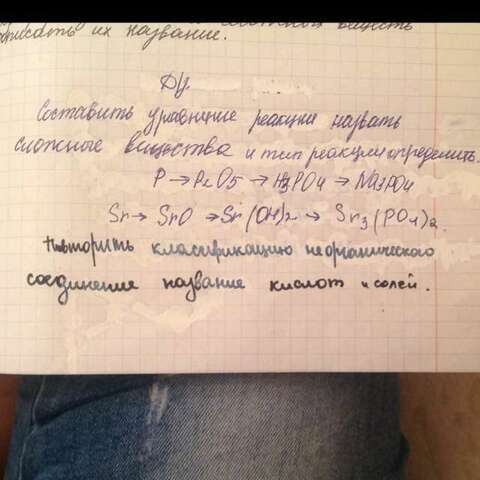 их название.
Д/з.
Составить уравнение реакции назвать
сложные вещества и тип реакции определить.
P → P2O5 → H3PO4 → Na3PO4
Sr → SrO → Sr(OH)2 → Sr3(PO4)2.
повторить классификацию неорганического
соединение название кислот и солей.